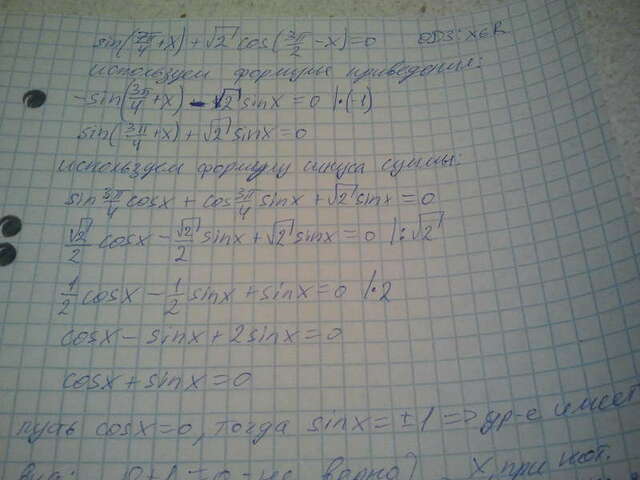 sin(7π/4 + x) + √2 cos(3π/2 - x) = 0 ОДЗ: x∈R
используем формулы приведения:
-sin(3π/4 + x) - √2 sinx = 0 |·(-1)
sin(3π/4 + x) + √2 sinx = 0
используем формулу синуса суммы:
sin 3π/4 cosx + cos 3π/4 sinx + √2 sinx = 0
√2/2 cosx - √2/2 sinx + √2 sinx = 0 |:√2
1/2 cosx - 1/2 sinx + sinx = 0 |·2
cosx - sinx + 2sinx = 0
cosx + sinx = 0
пусть cosx = 0, тогда sinx = ±1 => ур-е имеет
вид: 0±1=0 - не верно